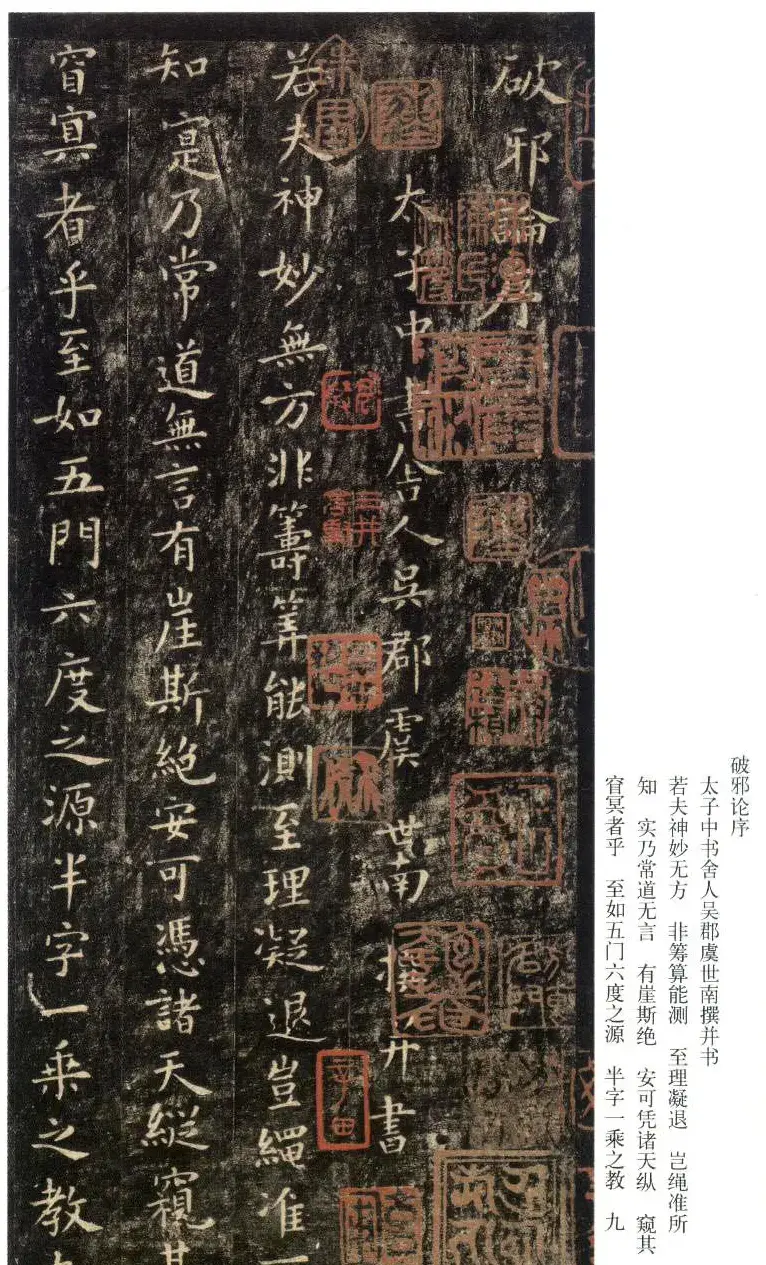 破邪論序
太子中書舍人吳郡虞世南撰并書
若夫神妙無方非籌筭能測至理凝退豈繩准
知寔乃常道無言有崖斯絶安可憑諸天縱窺其
窅冥者乎至如五門六度之源半字一乘之教
破邪论序
太子中书舍人吴郡虞世南撰并书
若夫神妙无方 非筹算能测 至理凝退 岂绳准所
知 实乃常道无言 有崖斯绝 安可凭诸天纵 窥其
窅冥者乎 至如五门六度之源 半字一乘之教 九